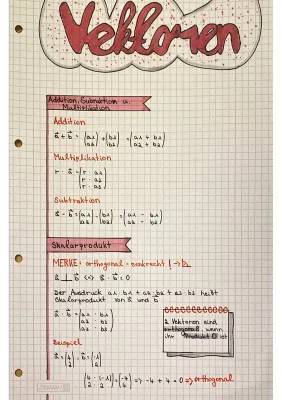 Vektoren
Addition, Subtraktion u.
Multiplikation
Addition
a⃗ + b⃗ = (a1 a2) + (b1 b2) = (a1 + b1 a2 + b2)
Multiplikation
r · a⃗ = (r · a1 r · a2)
Subtraktion
a⃗ - b⃗ =
Skalarprodukt
MERKE: orthogonal = senkrecht
a⃗ ⊥ b⃗ <=> a⃗ · b⃗ = 0
Der Ausdruck a1 · b1 + a2 · b2 + a3 · b3 heißt
Skalarprodukt von a⃗ und b⃗
2 Vektoren sind
orthogonal, wenn
ihr Produkt 0 ist
Beispiel
=> -4 + 4 = 0 => orthogonal